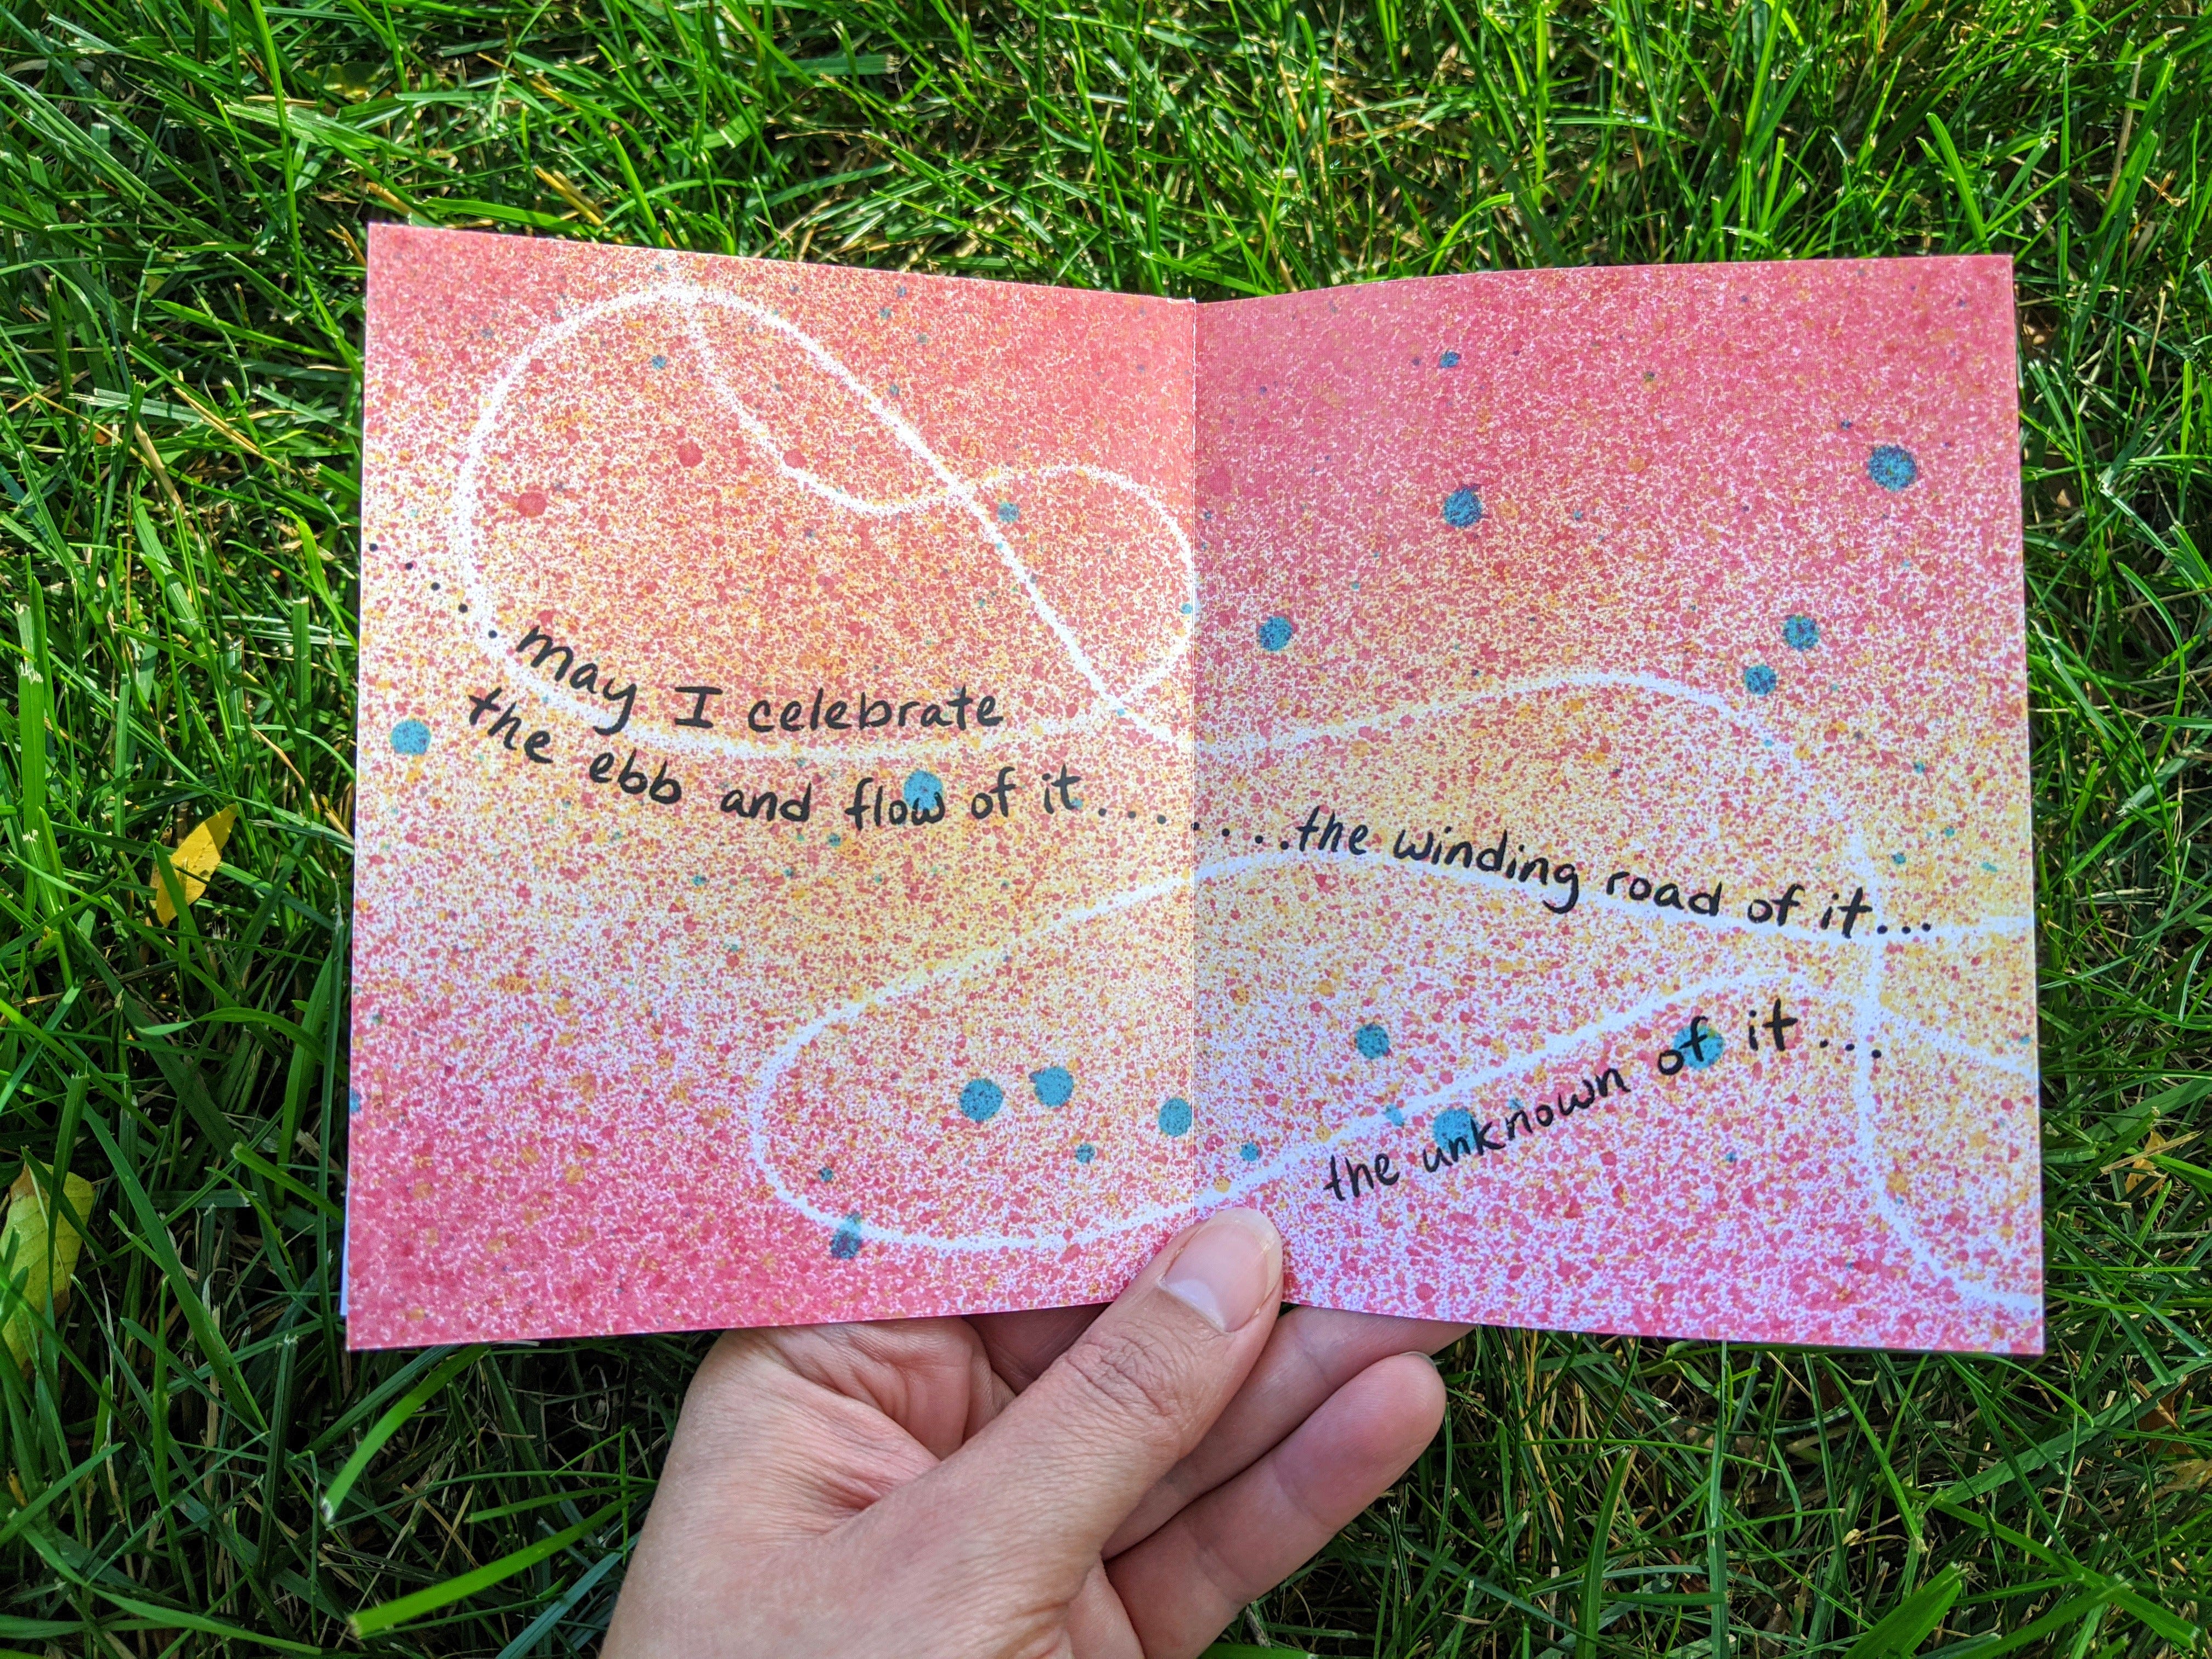 .....may I celebrate
the ebb and flow of it........the winding road of it...
the unknown of it...